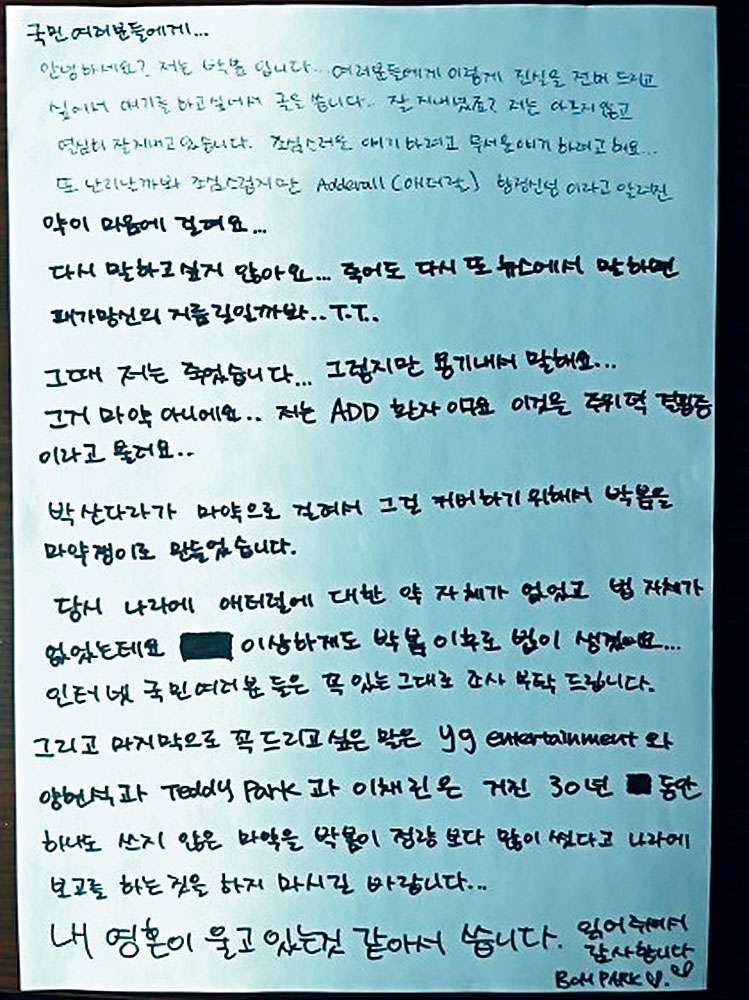 국민 여러분들에게...
안녕하세요? 저는 박봄 입니다... 여러분들에게 이렇게 진실을 전해 드리고
싶어서 얘기를 하고싶어서 글을 씁니다.. 잘 지내셨죠? 저는 아프지않고
열심히 잘지내고 있습니다. 조심스러운 얘기 하려고 무서운얘기 하려고 해요...
또 난리날까봐 조심스럽지만 Adderall (애더럴) 향정신성 이라고 알려진
약이 마음에 걸려요...
다시 말하고싶지 않아요... 죽어도 다시 또 뉴스에서 말하면
패가망신의 지름길일까봐..T.T..
그때 저는 죽었습니다... 그렇지만 용기내서 말해요...
그거 마약 아니에요.. 저는 ADD 환자이구요 이것은 주위력 결핍증
이라고 불려요..
박산다라가 마약으로 걸려서 그걸 커버하기 위해서 박봄을
마약쟁이로 만들었습니다.
당시 나라에 애터럴에 대한 약 자체가 없었고 법 자체가
없었는데요 이상하게도 박봄 이후로 법이 생겼어요...
인터넷 국민여러분 들은 꼭 있는그대로 조사 부탁 드립니다.
그리고 마지막으로 꼭 드리고 싶은 말은 yg entertainment와
양현석과 Teddy Park과 이채린은 거진 30년 동안
하나도 쓰지 않은 마약을 박봄이 정량 보다 많이 썼다고 나라에
보고를 하는 것을 하지 마시길 바랍니다...
내 영혼이 울고 있는것 같아서 씁니다. 읽어주셔서
감사합니다
BOM PARK ♡.♡